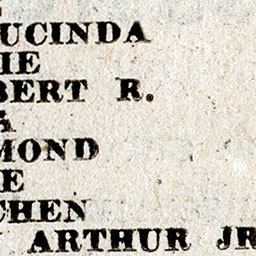 UCINDA
IE
BERT R.
MOND
E
CHEN
ARTHUR JR